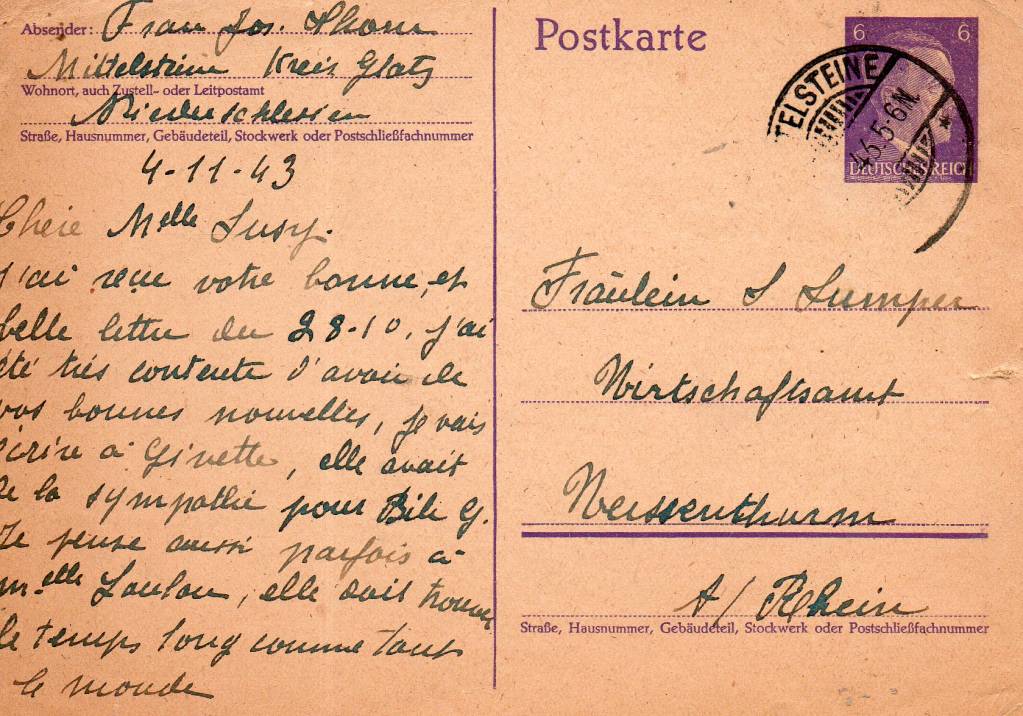 Absender: Frau Jos. Thom
Mittelsteine Kreis Glatz
Wohnort, auch Zustell- oder Leitpostamt
Niederschlesien
Straße, Hausnummer, Gebäudeteil, Stockwerk oder Postschließfachnummer
4-11-43
Chère Melle Susy.
J'ai reçu votre bonne, et
belle lettre du 28-10. j'ai
été très contente d'avoir de
vos bonnes nouvelles, je vais
écrire à Ginette, elle avait
de la sympathie pour G.
Je pense aussi parfois à
m.elle Loulou, elle doit trouver
le temps long comme tout
le monde
Postkarte
6 6
DEUTSCHES REICH
TELSTEINE
5 6N.
Fräulein S Lumper
Wirtschaftsamt
Weissenthurm
A/ Rhein
Straße, Hausnummer, Gebäudeteil, Stockwerk oder Postschließfachnummer